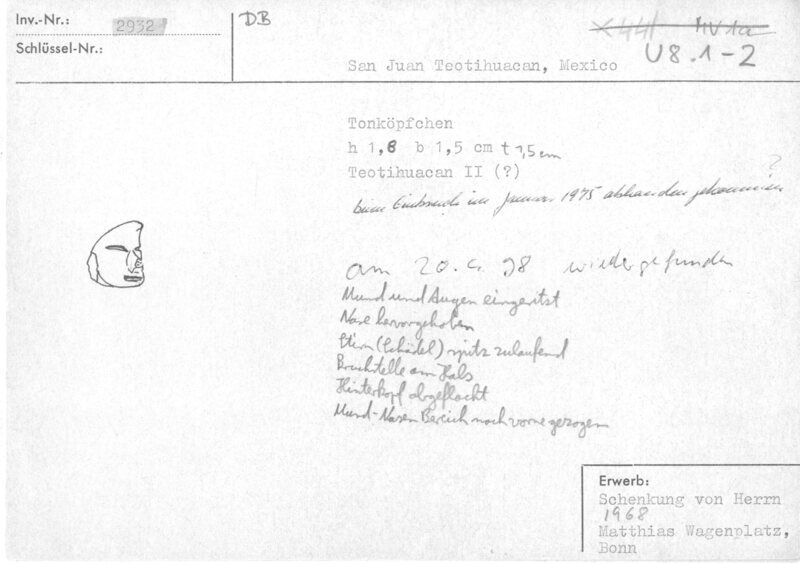 Inv.-Nr.: 2932
DB
X 441 HV 1a
Schlüssel-Nr.:
San Juan Teotihuacan, Mexico U 8.1-2
Tonköpfchen
h 1,8 b 1,5 cm t 1,5 cm
Teotihuacan II (?)
beim Einbruch im Januar 1975 abhanden gekommen ?
am 20. 4. 98 wiedergefunden
Mund und Augen eingeritzt
Nase hervorgehoben
Stirn (Schädel) spitz zulaufend
Bruchstelle am Hals
Hinterkopf abgeflacht
Mund-Nasen Bereich nach vorne gezogen
Erwerb:
Schenkung von Herrn
1968
Matthias Wagenplatz,
Bonn